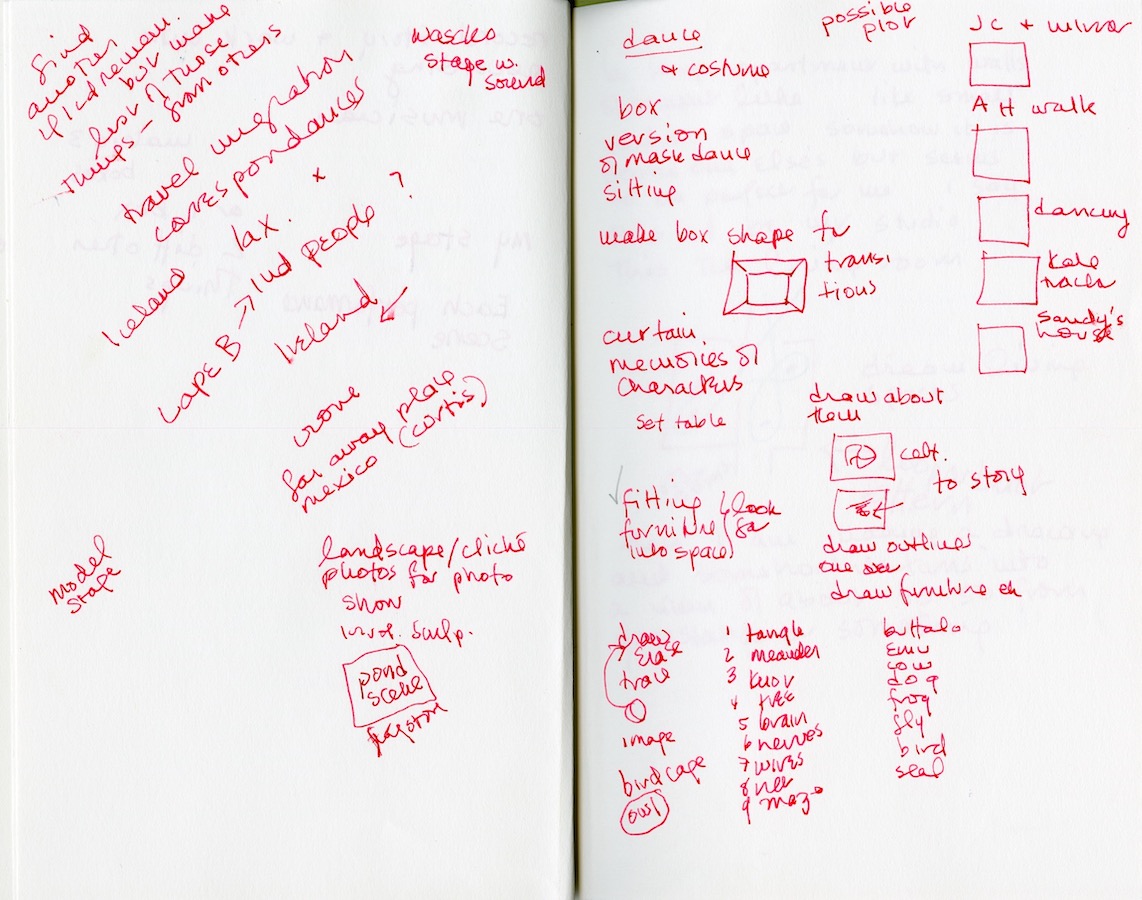 find
another
box make
list of those
things - from others
travel migration
correspondances
Iceland lax. x
Cape B → Ind people ?
Ireland
far away place
mexico (curtis)
model
stage
stage w.
sound
landscape/cliché
photos for photo
show
invol. sculp.
pond
scene
dance
+ costume
box
version
of mask dance
sitting
make box shape for
transi
tions
curtain
memories of
characters
set table
fitting
furniture
into space
look
for
draw
erase
trace
image
bird cage
owl
possible
plot
JC + mirror
A H walk
dancing
Kate
Sandy's
house
draw about
them
to story
draw outlines
draw furniture
1 tangle
2 meander
3 knot
4 tree
5 brain
6 nerves
7 wires
8 net
9 maze
buffalo
emu
cow
dog
frog
fly
bird
seal